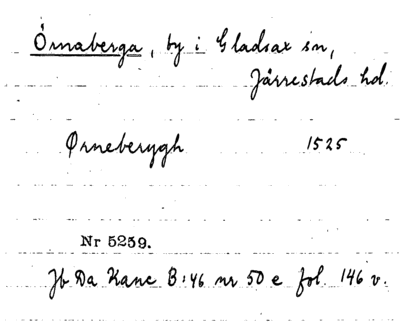 Örnaberga, by i Gladsax sn,
Järrestads hd.
Ørneberygh 1525
Nr 5259.
Jb Da Kanc B:46 nr 50 e fol. 146 v.